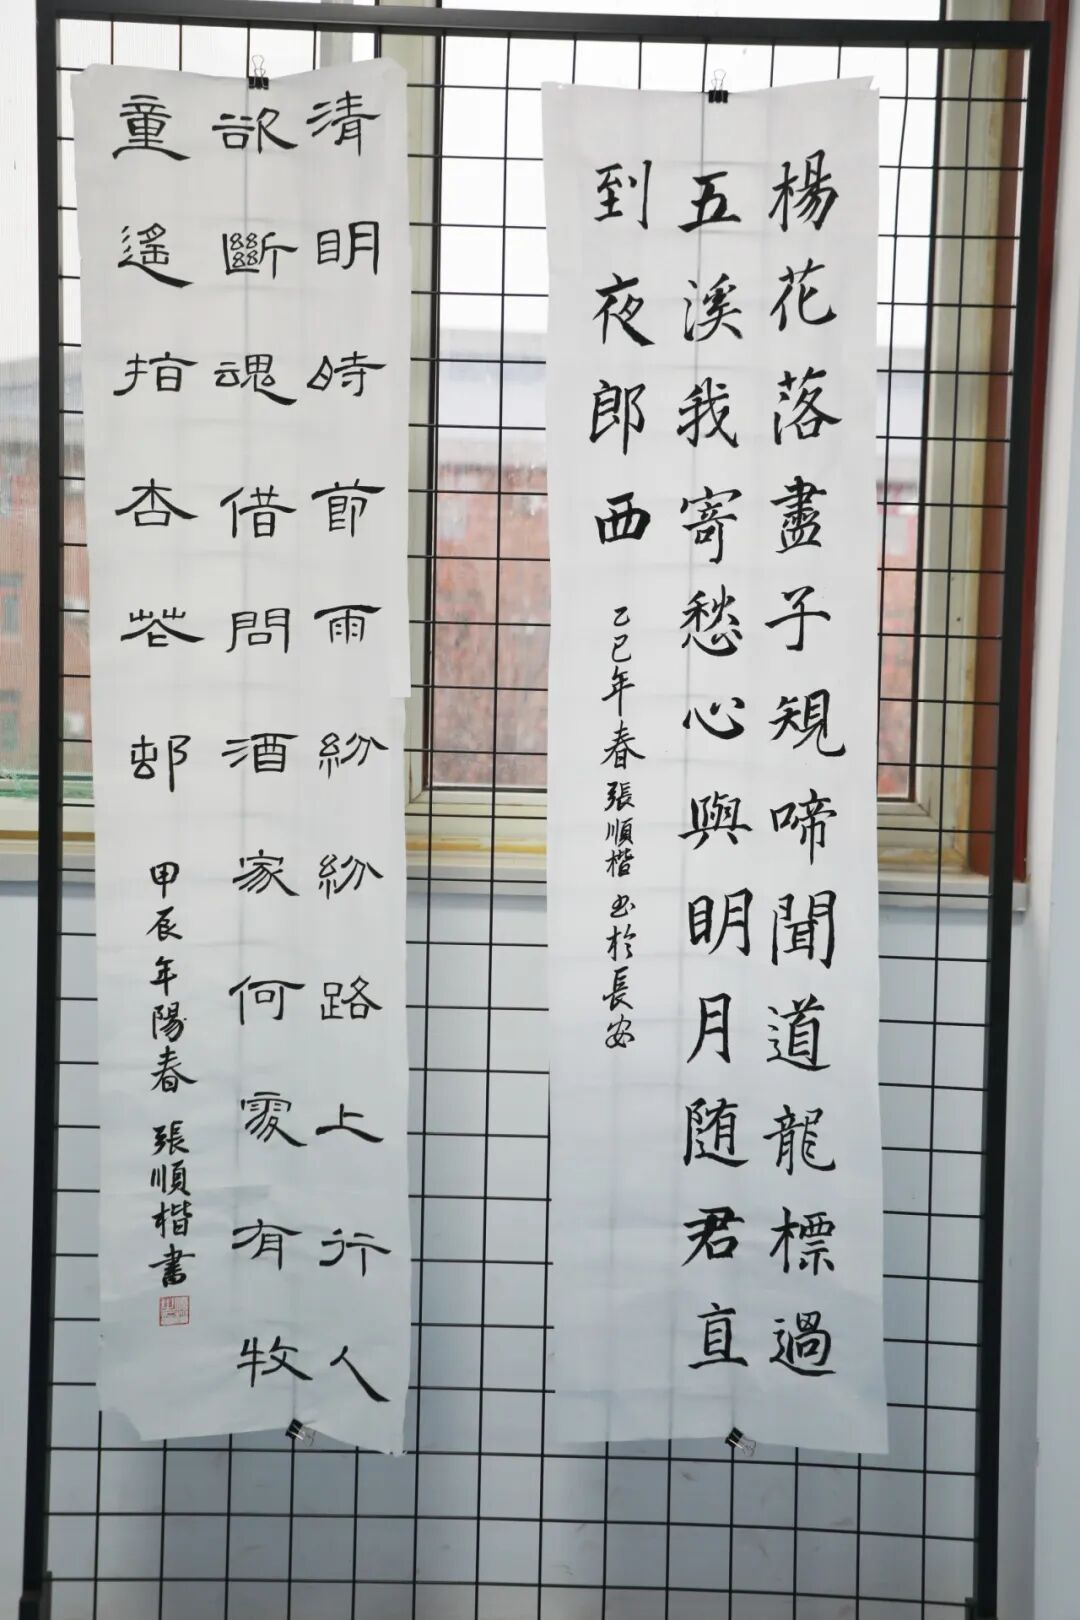 楊花落盡子規啼聞道龍標過
五溪我寄愁心與明月随君直
到夜郎西
乙巳年春張順楷书於長安
清明時節雨紛紛路上行人
欲斷魂借問酒家何處有牧
童遙指杏花邨
甲辰年陽春張順楷書